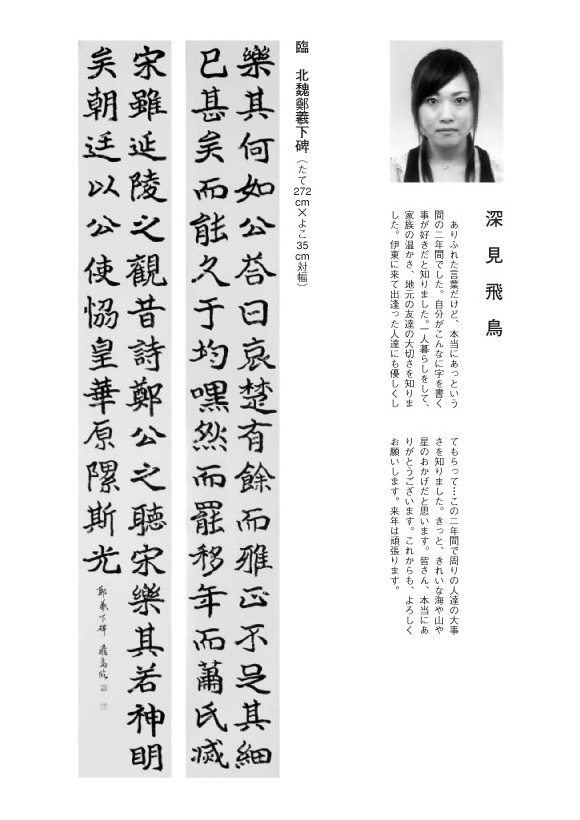 深見飛鳥
ありふれた言葉だけど、本当にあっという
間の二年間でした。自分がこんなに字を書く
事が好きだと知りました。一人暮らしをして、
家族の温かさ、地元の友達の大切さを知りま
した。伊東に来て出逢った人達にも優しくし
てもらって…この二年間で周りの人達の大事
さを知りました。きっと、きれいな海や山や
星のおかげだと思います。皆さん、本当にあ
りがとうございます。これからも、よろしく
お願いします。来年は頑張ります。
臨 北魏鄭羲下碑（たて272cm×よこ35cm対幅）
樂其何如公荅曰哀楚有餘而雅正不足其細
已甚矣而能久于均嘿然而罷移年而蕭氏滅
宋雖延陵之觀昔詩鄭公之聽宋樂其若神明
矣朝廷以公使恊皇華原隰斯光
鄭羲下碑 飛鳥臨